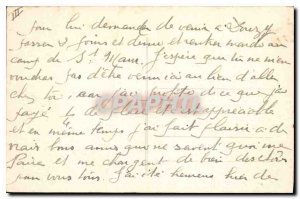 III
pour lui demander de venir a Douzy
passer 8 jours et demie et rentrer mardi au
camp de St Maur. J'espère que tu ne m'en
voudras pas d'être venu ici au lieu d'aller
chez toi, car j'ai profité de ce que j'ai
payé de plus et est appréciable
et en même temps j'ai fait plaisir a de
vrais bons amis qui ne savent quoi me
faire et me chargent de bien des choses
pour vous tous. J'ai été heureux hier de